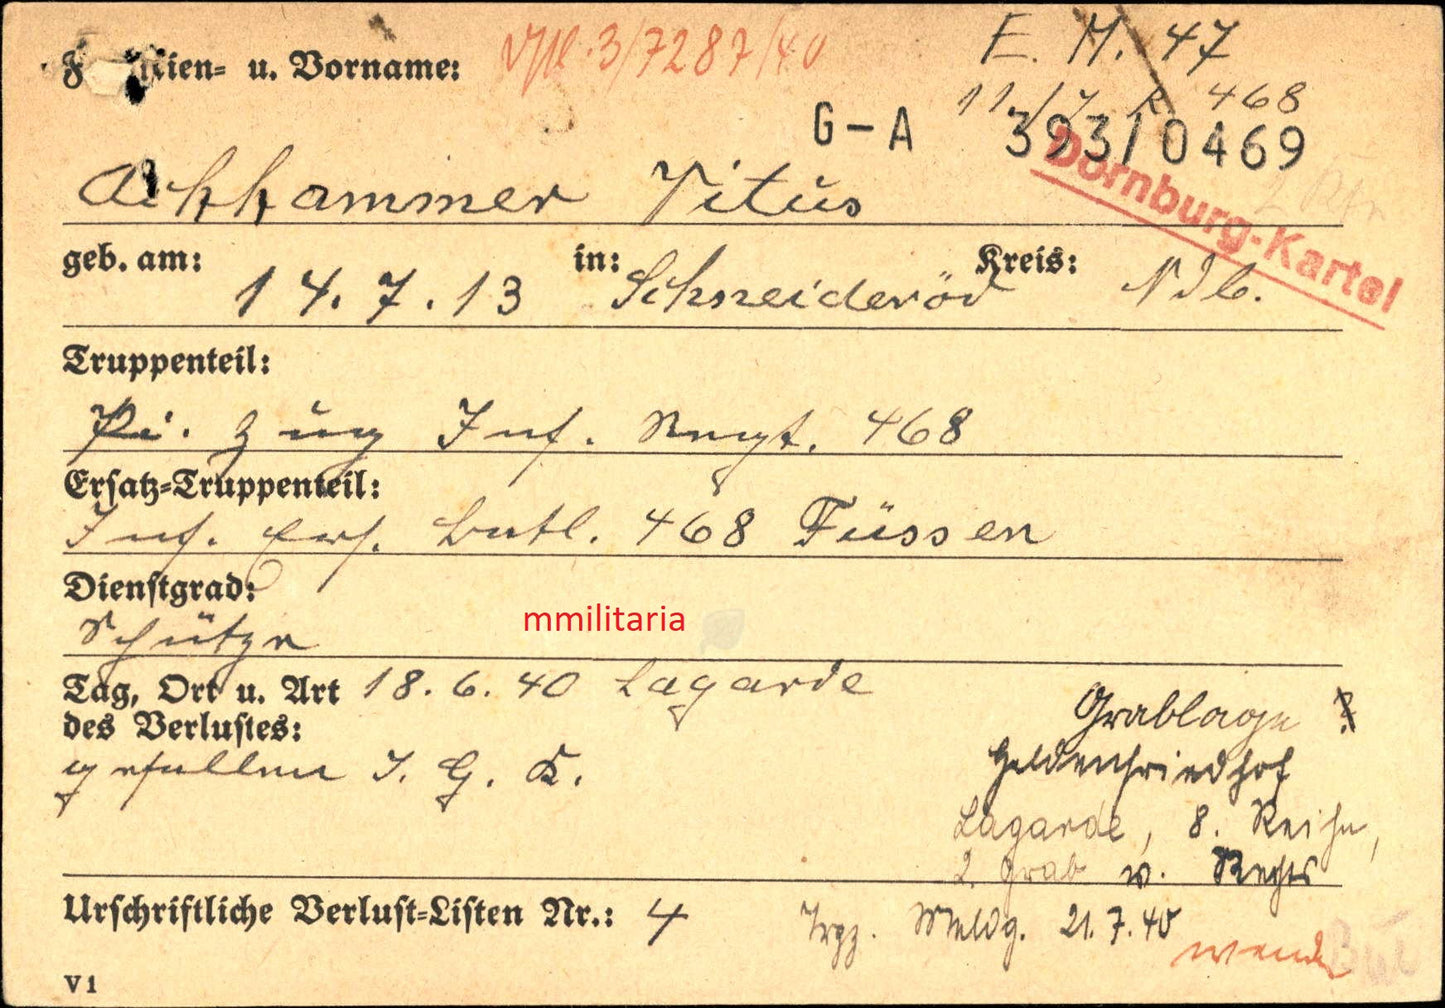 Familien= u. Vorname: 3/7287/40
E. M. 47
11./7. R. 468
G-A 393/0469
Dornburg-Kartei
Achhammer Vitus
geb. am: 14.7.13 in: Schneideröd Kreis: Ndb.
Truppenteil:
Pi. Zug Inf. Regt. 468
Ersatz-Truppenteil:
Inf. Ers. Batl. 468 Füssen
Dienstgrad:
Schütze
mmilitaria
Tag, Ort u. Art 18.6.40 Lagarde
des Verlustes:
gefallen I. G. K.
Grablage
Heldenfriedhof
Lagarde, 8. Reihe,
2. Grab v. Rechts
Urschriftliche Verlust-Listen Nr.: 4
Trpp. Meldg. 21.7.40
wenden
V1